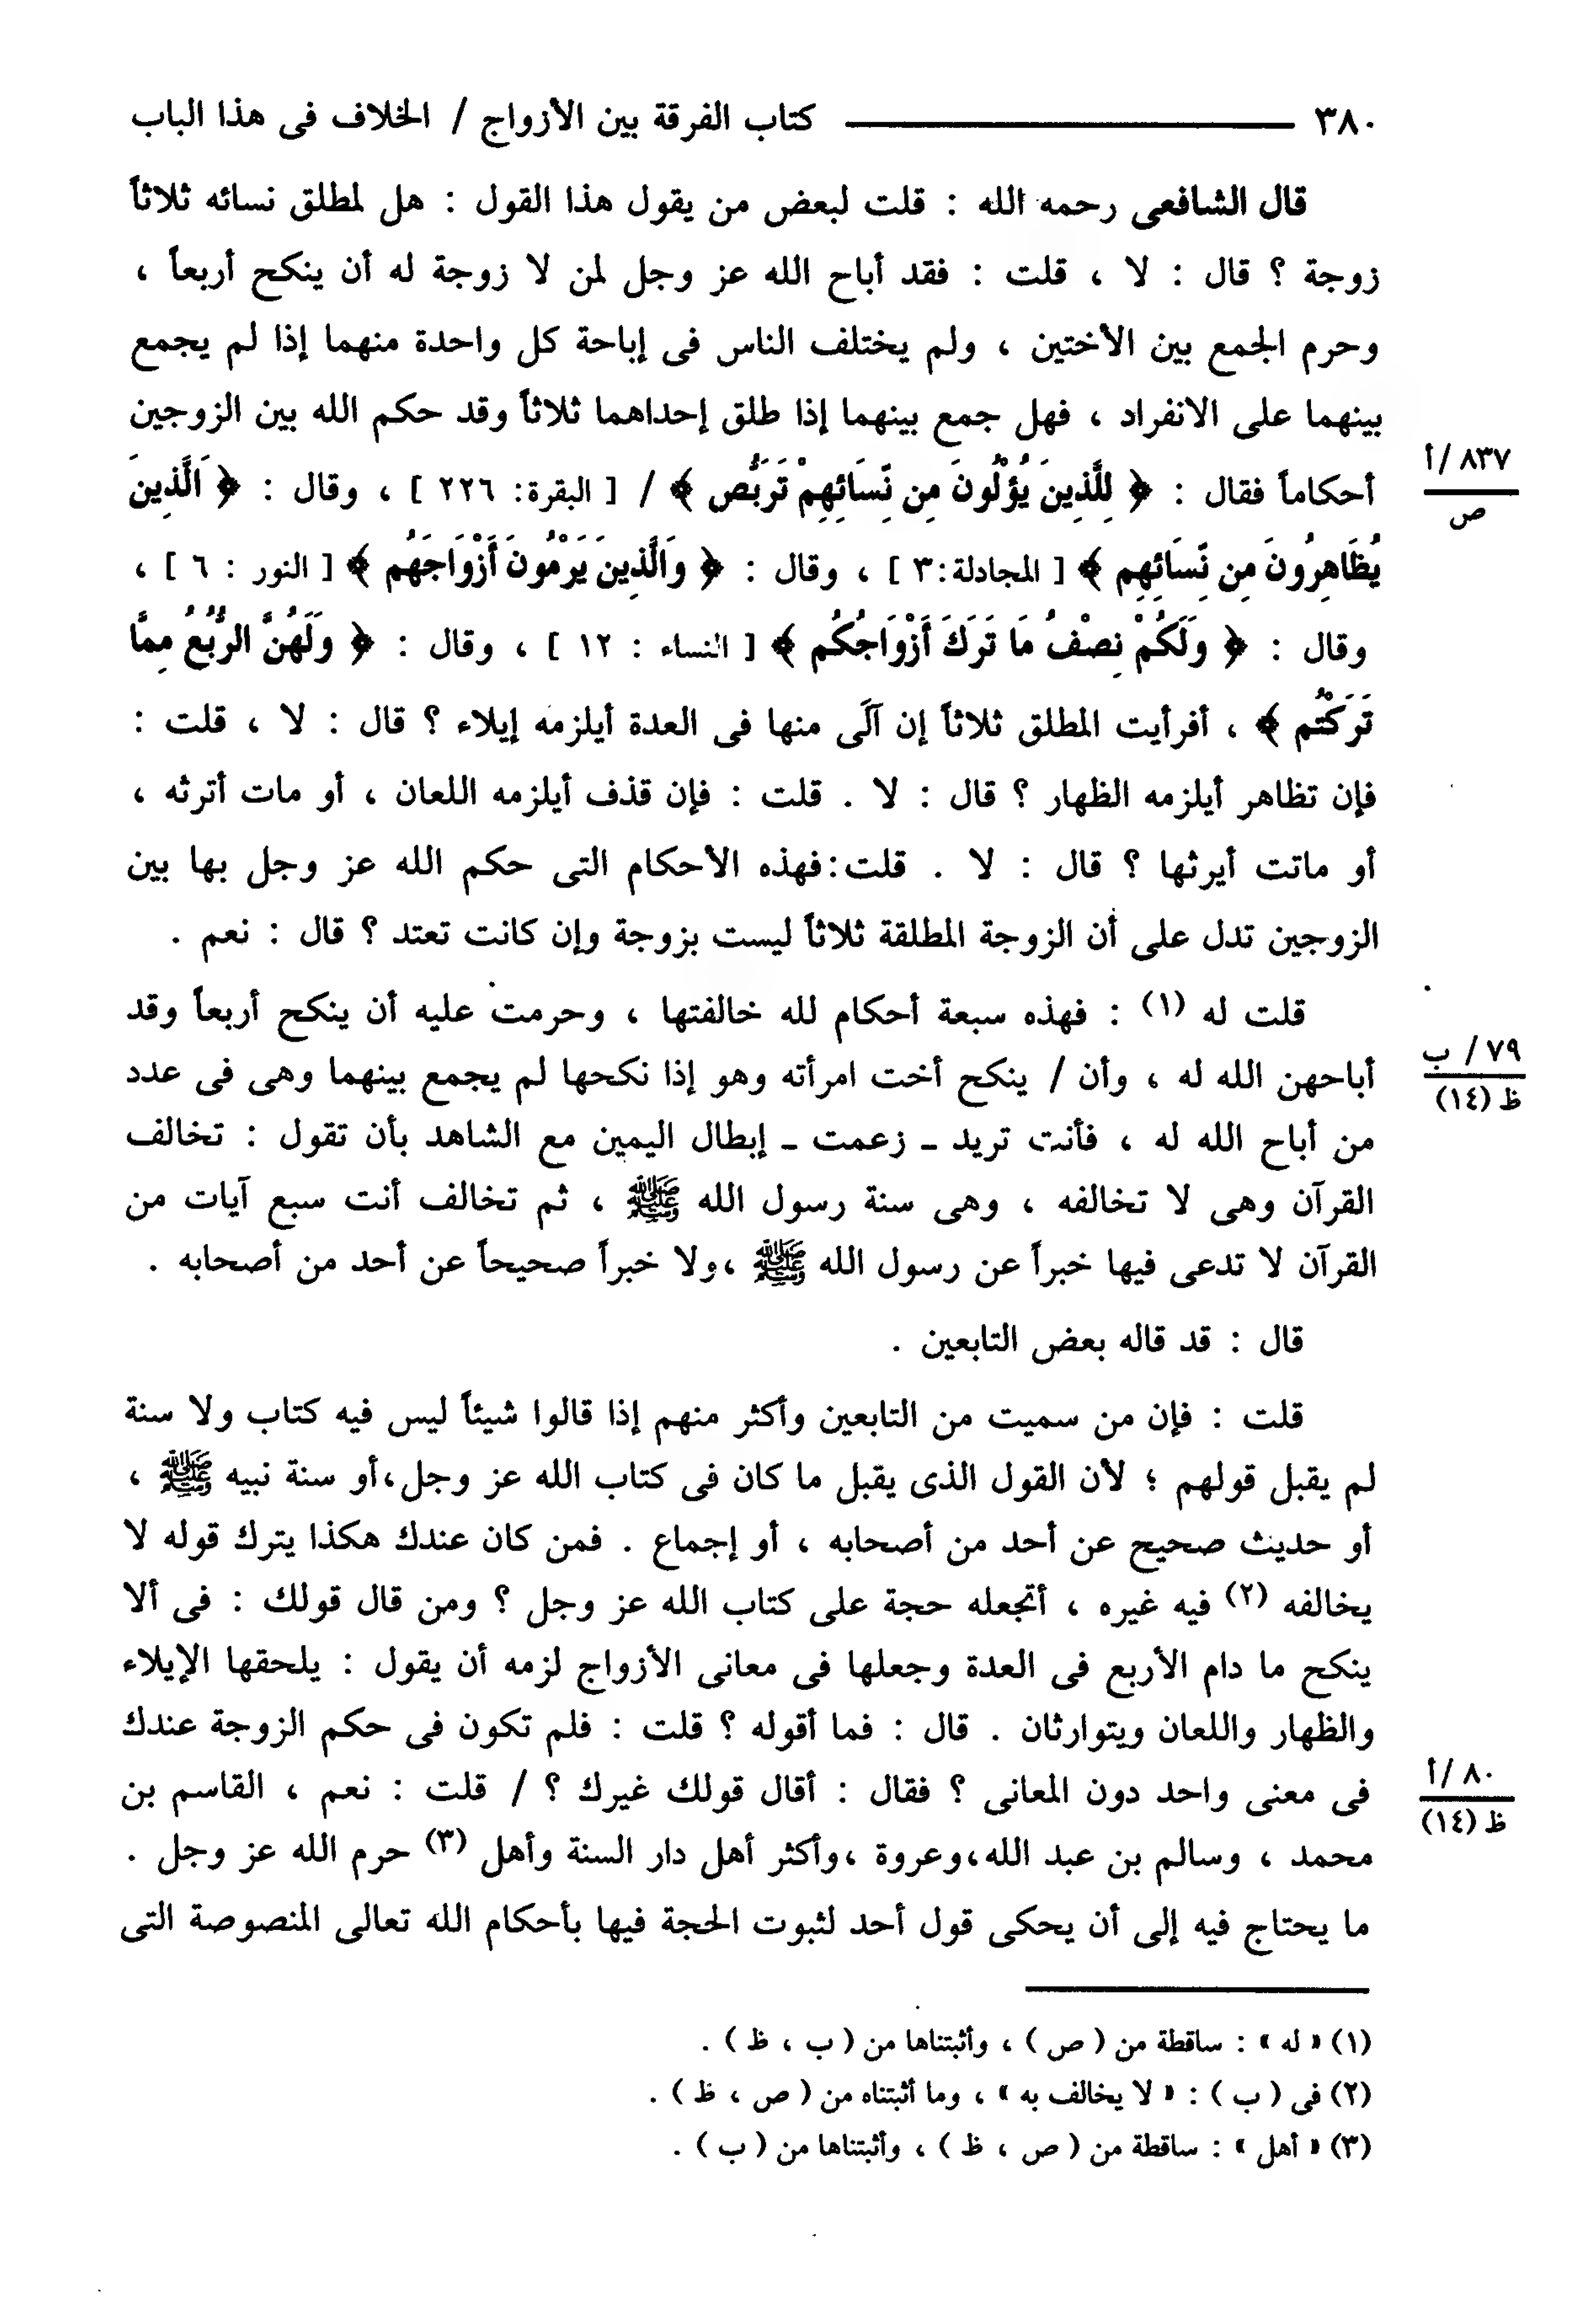 ٣٨٠ ــــــــــــــــ كتاب الفرقة بين الأزواج / الخلاف فى هذا الباب
قال الشافعى رحمه الله : قلت لبعض من يقول هذا القول : هل لمطلق نسائه ثلاثاً
زوجة ؟ قال : لا ، قلت : فقد أباح الله عز وجل لمن لا زوجة له أن ينكح أربعاً ،
وحرم الجمع بين الأختين ، ولم يختلف الناس فى إباحة كل واحدة منهما إذا لم يجمع
بينهما على الانفراد ، فهل جمع بينهما إذا طلق إحداهما ثلاثاً وقد حكم الله بين الزوجين
أحكاماً فقال : ﴿ لِلَّذِينَ يُؤْلُونَ مِن نِّسَائِهِمْ تَرَبُّصُ ﴾ / [ البقرة: ٢٢٦ ] ، وقال : ﴿ الَّذِينَ
٨٣٧ /أ
ص
يُظَاهِرُونَ مِن نِّسَائِهِم ﴾ [ المجادلة:٣ ] ، وقال : ﴿ وَالَّذِينَ يَرْمُونَ أَزْوَاجَهُم ﴾ [ النور : ٦ ] ،
وقال : ﴿ وَلَكُمْ نِصْفُ مَا تَرَكَ أَزْوَاجُكُم ﴾ [ النساء : ١٢ ] ، وقال : ﴿ وَلَهُنَّ الرُّبُعُ مِمَّا
تَرَكْتُم ﴾ ، أفرأيت المطلق ثلاثاً إن آلَى منها فى العدة أيلزمه إيلاء ؟ قال : لا ، قلت :
فإن تظاهر أيلزمه الظهار ؟ قال : لا . قلت : فإن قذف أيلزمه اللعان ، أو مات أترثه ،
أو ماتت أيرثها ؟ قال : لا . قلت:فهذه الأحكام التى حكم الله عز وجل بها بين
الزوجين تدل على أن الزوجة المطلقة ثلاثاً ليست بزوجة وإن كانت تعتد ؟ قال : نعم .
قلت له (١) : فهذه سبعة أحكام لله خالفتها ، وحرمت عليه أن ينكح أربعاً وقد
أباحهن الله له ، وأن / ينكح أخت امرأته وهو إذا نكحها لم يجمع بينهما وهى فى عدد
٧٩ / ب
ظ (١٤)
من أباح الله له ، فأنت تريد ـ زعمت ـ إبطال اليمين مع الشاهد بأن تقول : تخالف
القرآن وهى لا تخالفه ، وهى سنة رسول الله ﷺ ، ثم تخالف أنت سبع آيات من
القرآن لا تدعى فيها خبراً عن رسول الله ﷺ ،ولا خبراً صحيحاً عن أحد من أصحابه .
قال : قد قاله بعض التابعين .
قلت : فإن من سميت من التابعين وأكثر منهم إذا قالوا شيئاً ليس فيه كتاب ولا سنة
لم يقبل قولهم ؛ لأن القول الذى يقبل ما كان فى كتاب الله عز وجل،أو سنة نبيه ﷺ ،
أو حديث صحيح عن أحد من أصحابه ، أو إجماع . فمن كان عندك هكذا يترك قوله لا
يخالفه (٢) فيه غيره ، أتجعله حجة على كتاب الله عز وجل ؟ ومن قال قولك : فى ألا
ينكح ما دام الأربع فى العدة وجعلها فى معانى الأزواج لزمه أن يقول : يلحقها الإيلاء
والظهار واللعان ويتوارثان . قال : فما أقوله ؟ قلت : فلم تكون فى حكم الزوجة عندك
فى معنى واحد دون المعانى ؟ فقال : أقال قولك غيرك ؟ / قلت : نعم ، القاسم بن
٨٠ /أ
ظ (١٤)
محمد ، وسالم بن عبد الله،وعروة ،وأكثر أهل دار السنة وأهل (٣) حرم الله عز وجل .
ما يحتاج فيه إلى أن يحكى قول أحد لثبوت الحجة فيها بأحكام الله تعالى المنصوصة التى
(١) « له » : ساقطة من ( ص ) ، وأثبتناها من ( ب ، ظ ) .
(٢) فى ( ب ) : « لا يخالف به » ، وما أثبتناه من ( ص ، ظ ) .
(٣) « أهل » : ساقطة من ( ص ، ظ ) ، وأثبتناها من ( ب ) .